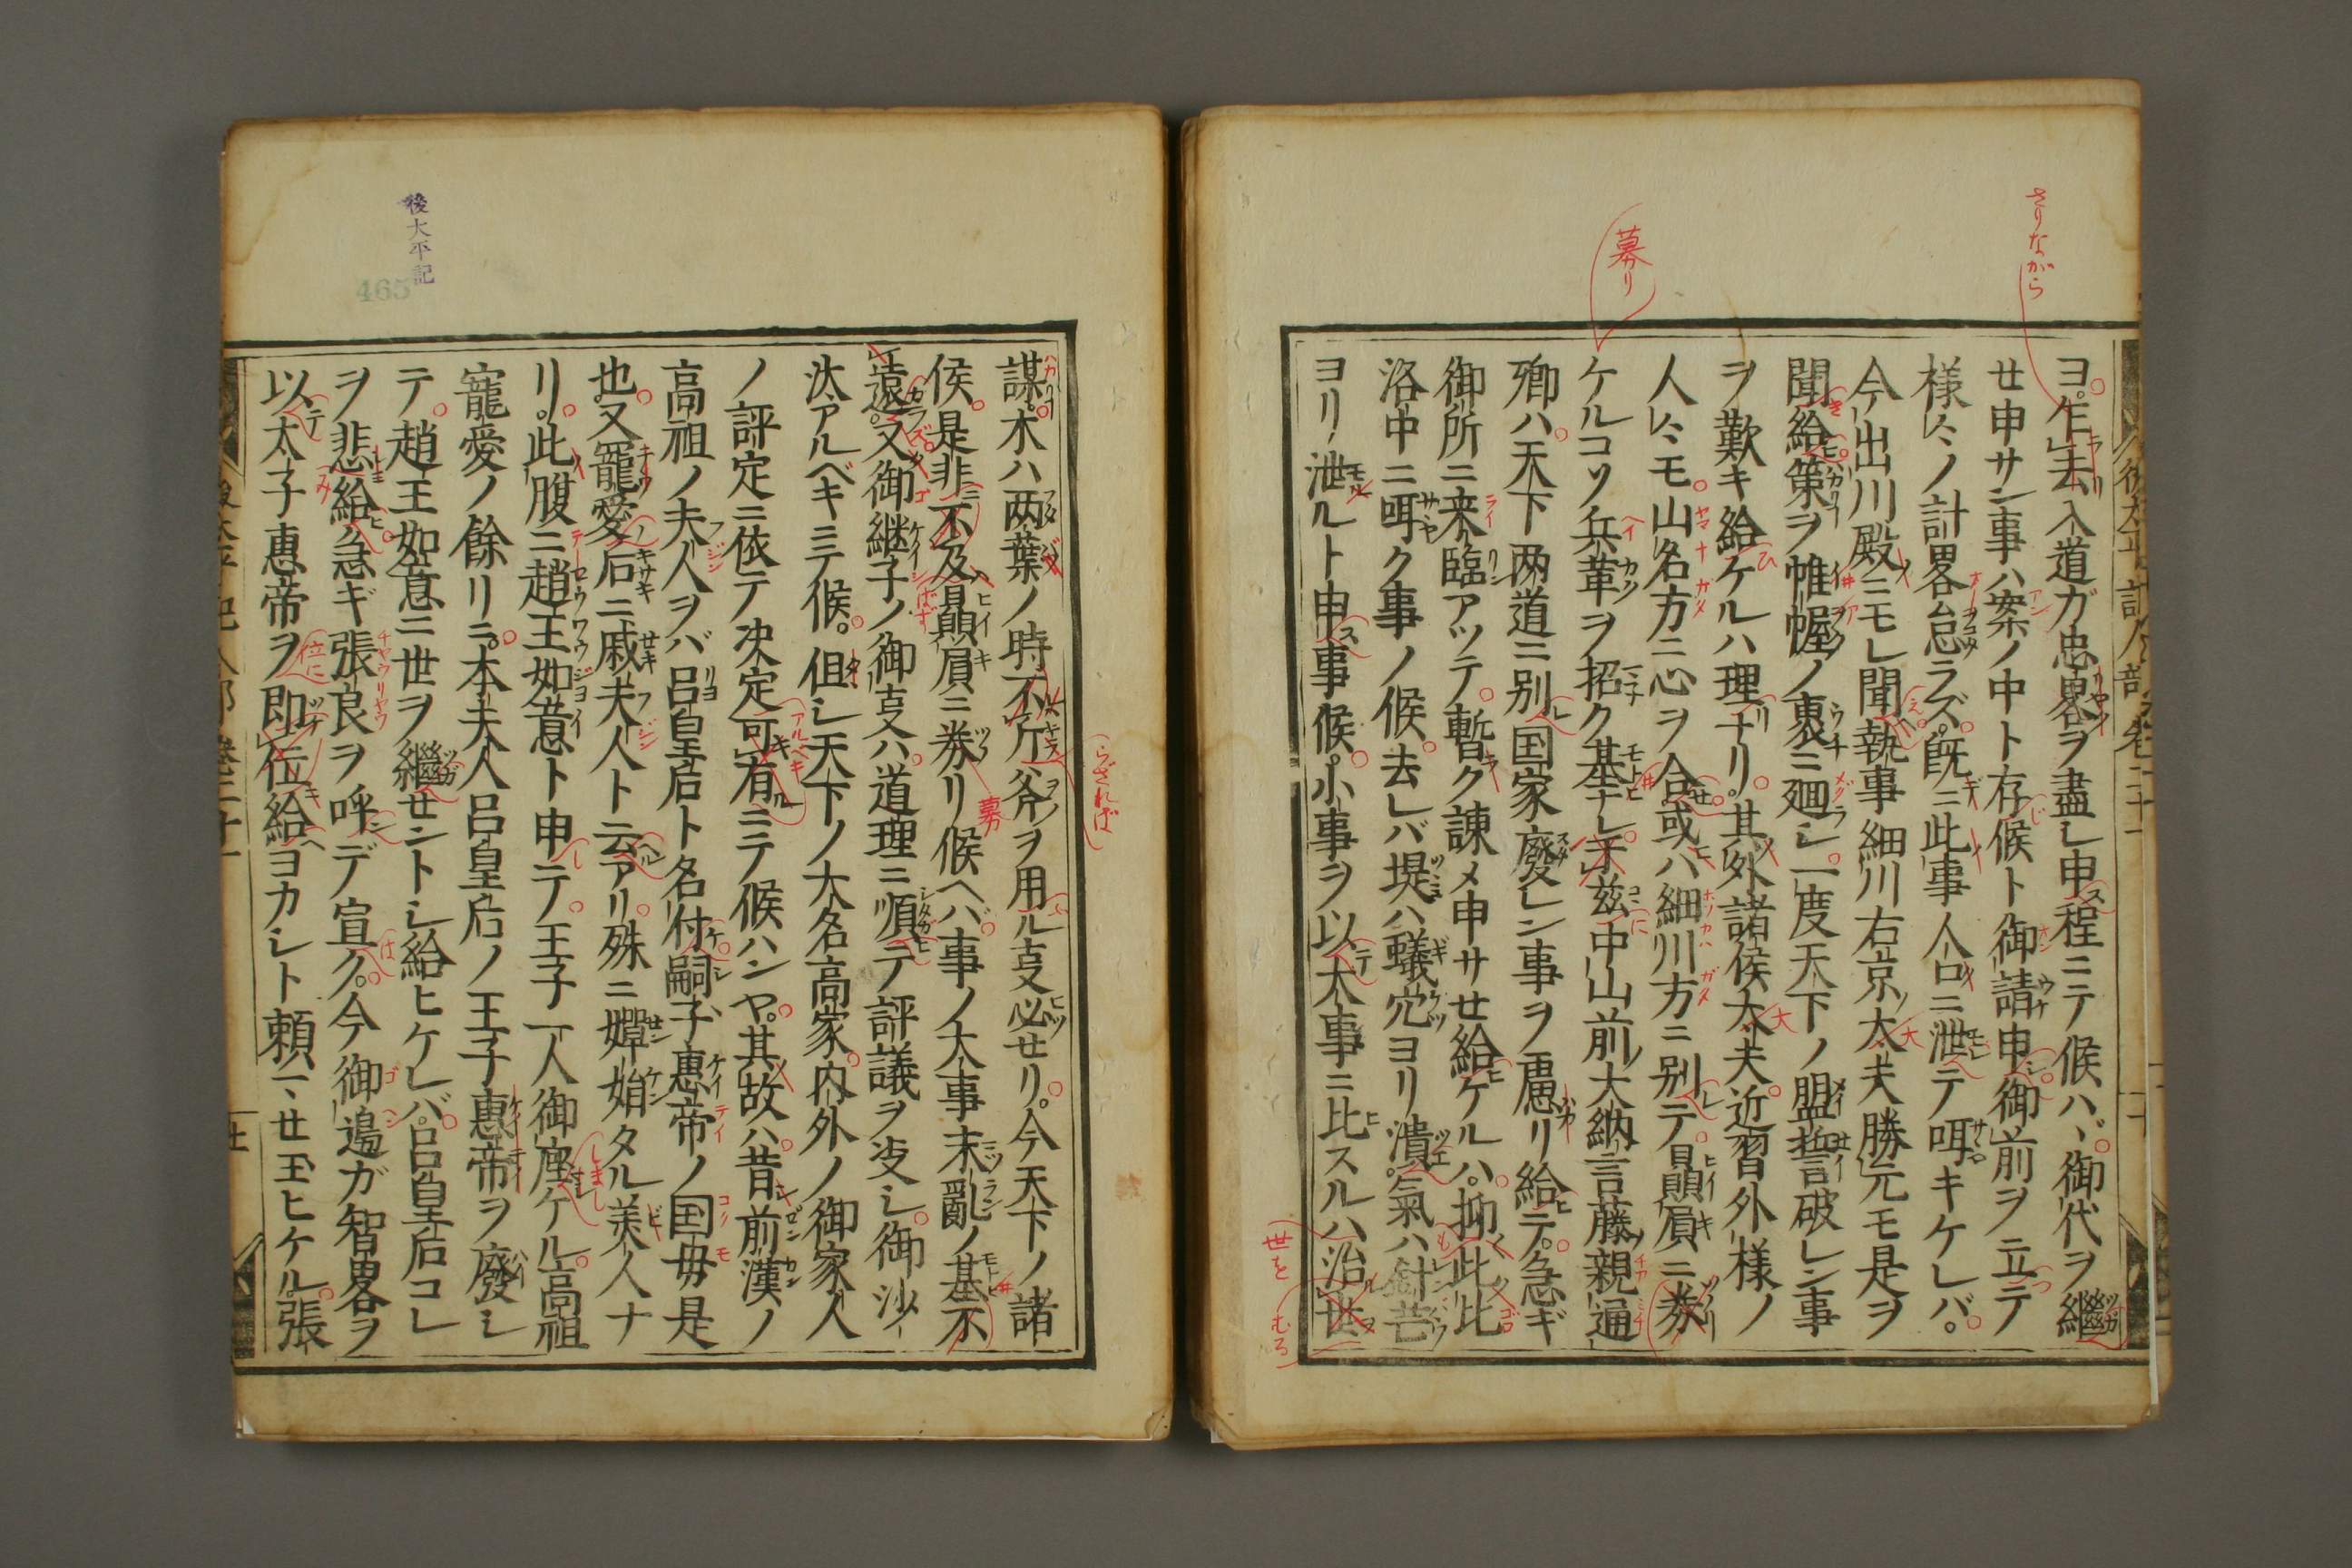 さりながら
ヨ。乍去入道ガ忠畧ヲ盡シ申程ニテ候ハヾ御代ヲ繼
セ申サン事ハ案ノ中ト存候ト御請申御前ヲ立テ
様々ノ計畧怠ラズ。既ニ此事人口ニ泄テ咡キケレバ。
今出川殿ニモレ聞執事細川右京大夫勝元モ是ヲ
聞給策ヲ帷幄ノ裏ニ廻シ一度天下ノ盟誓破レン事
ヲ歎キ給ケルハ理ナリ。其外諸侯大夫近習外様ノ
人々モ山名方ニ心ヲ合或ハ細川方ニ別テ贔屓ニ券
募り
ケルコソ兵革ヲ招ク基ナレ于茲中山前大納言藤親通
卿ハ天下两道ニ別国家廢レン事ヲ慮リ給テ。急ギ
御所ニ来臨アツテ暫ク諫メ申サセ給ケルハ。抑此比
洛中ニ咡ク事ノ候去レバ堤ハ蟻穴ヨリ潰。氣ハ針芒
ヨリ泄ルト申事候。小事ヲ以大事ニ比スルハ治世
世を
謀。木ハ两葉ノ時不斤斧ヲ用ル叓必セリ。今天下ノ諸
らざれば
侯是非不及贔屓ニ券リ候ヘバ事ノ大事未亂ノ基不
募
遠。又御継子ノ御叓ハ道理ニ順テ評議ヲ决シ御沙
汰アルベキミテ候。但シ天下ノ大名高家内外ノ御家人
ノ評定ニ依テ决定可有ニテ候ハンヤ。其故ハ昔前漢ノ
高祖ノ夫人ヲバ呂皇后ト名付嗣子惠帝ノ国母是
也又寵愛后ニ戚夫人ト云アリ殊ニ嬋娟タル美人ナ
リ。此腹ニ趙王如意ト申テ王子一人御座ケル高祖
寵愛ノ餘リニ。本夫人呂皇后ノ王子惠帝ヲ廢シ
テ趙王如意ニ世ヲ繼セントシ給ヒケレバ呂皇后コレ
ヲ悲給急ギ張良ヲ呼デ宣ク。今御邉ガ智畧ヲ
以太子惠帝ヲ即位給ヨカシト頼マセ玉ヒケル張
後大平記
465